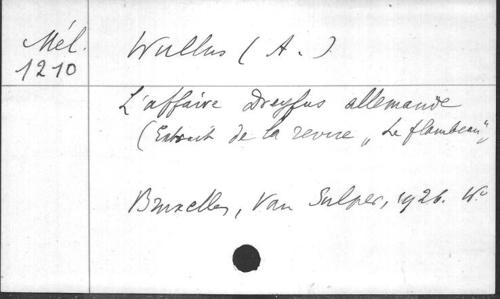 Mél.
1210
Wullus (A.)
L'affaire Dreyfus allemande
(Extrait de la revue „Le flambeau")
Bruxelles, Van Sulper, 1926.